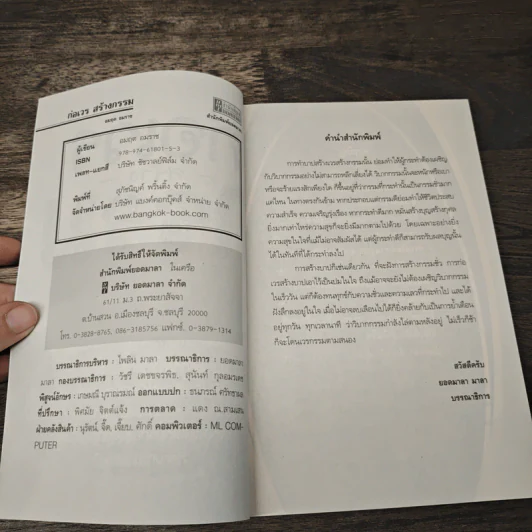 ก่อเวร สร้างกรรม
อมฤต อมราช
ผู้เขียน อมฤต อมราช
ISBN 978-974-61801-5-3
เพลท-แยกสี บริษัท ชัชวาลย์ฟิล์ม จำกัด
พิมพ์ที่ สุภัชนิญค์ พริ้นติ้ง จำกัด
จัดจำหน่ายโดย บริษัท แบงค์คอกบุ๊คส์ จำหน่าย จำกัด
www.bangkok-book.com
ได้รับสิทธิ์ให้จัดพิมพ์
สำนักพิมพ์ยอดมาลา ในเครือ
บริษัท ยอดมาลา จำกัด
61/11 ม.3 ถ.พระยาสัจจา
ต.บ้านสวน อ.เมืองชลบุรี จ.ชลบุรี 20000
โทร. 0-3828-8765, 086-3185756 แฟกซ์. 0-3879-1314
บรรณาธิการบริหาร : ไพลิน มาลา บรรณาธิการ : ยอดมา
มาลา กองบรรณาธิการ : วัชรี เดชขจรพิช, สุนันท์ กุลอมรเดช
พิสูจน์อักษร : เกษมณี บุราณรมณ์ ออกแบบปก : ธนภรณ์
ที่ปรึกษา : พิศมัย จิตต์แจ้ง การตลาด : แดง ณ.สามเสน
ฝ่ายคลังสินค้า : นุรัตน์, จี๊ด, เจี๊ยบ, ศักดิ์ คอมพิวเตอร์ : ML COM-
PUTER
คำนำสำนักพิมพ์
การทำบาปสร้างเวรสร้างกรรมนั้น ย่อมทำให้ผู้กระทำต้องเผชิญ
กับวิบากกรรมอย่างไม่สามารถหลีกเลี่ยงได้ วิบากกรรมนั้นจะหนักหรือเบา
หรือจะร้ายแรงสักเพียงใด ก็ขึ้นอยู่ที่ว่ากรรมที่กระทำนั้นเป็นกรรมชั่วมาก
แค่ไหน ในทางตรงกันข้าม หากประกอบแต่กรรมดีย่อมทำให้ชีวิตประสบ
ความสำเร็จ ความเจริญรุ่งเรือง หากกระทำดีมาก หมั่นสร้างบุญสร้างกุศล
ยิ่งมากเท่าไหร่ความสุขก็จะยิ่งมีมากตามไปด้วย โดยเฉพาะอย่างยิ่ง
ความสุขในใจที่แม้ไม่อาจสัมผัสได้ แต่ผู้กระทำดีก็สามารถรับผลบุญนั้น
ได้ในทันทีที่ได้กระทำลงไป
การสร้างบาปก็เช่นเดียวกัน ที่จะฝังการสร้างกรรมชั่ว การก่อ
เวรสร้างบาปเอาไว้เป็นปมในใจ ถึงแม้อาจจะยังไม่ต้องเผชิญวิบากกรรม
ในเร็ววัน แต่ก็ต้องทนทุกข์กับความชั่วและความเลวที่กระทำไป และได้
ฝังลึกลงอยู่ในใจ เมื่อไม่อาจลบเลือนไปได้ก็ยิ่งคล้ายกับเป็นการย้ำเตือน
อยู่ทุกวัน ทุกเวลานาที ว่าวิบากกรรมกำลังไล่ตามหลังอยู่ ไม่เร็วก็ช้า
ก็จะโดนเวรกรรมตามสนอง
สวัสดีครับ
ยอดมาลา มาลา
บรรณาธิการ